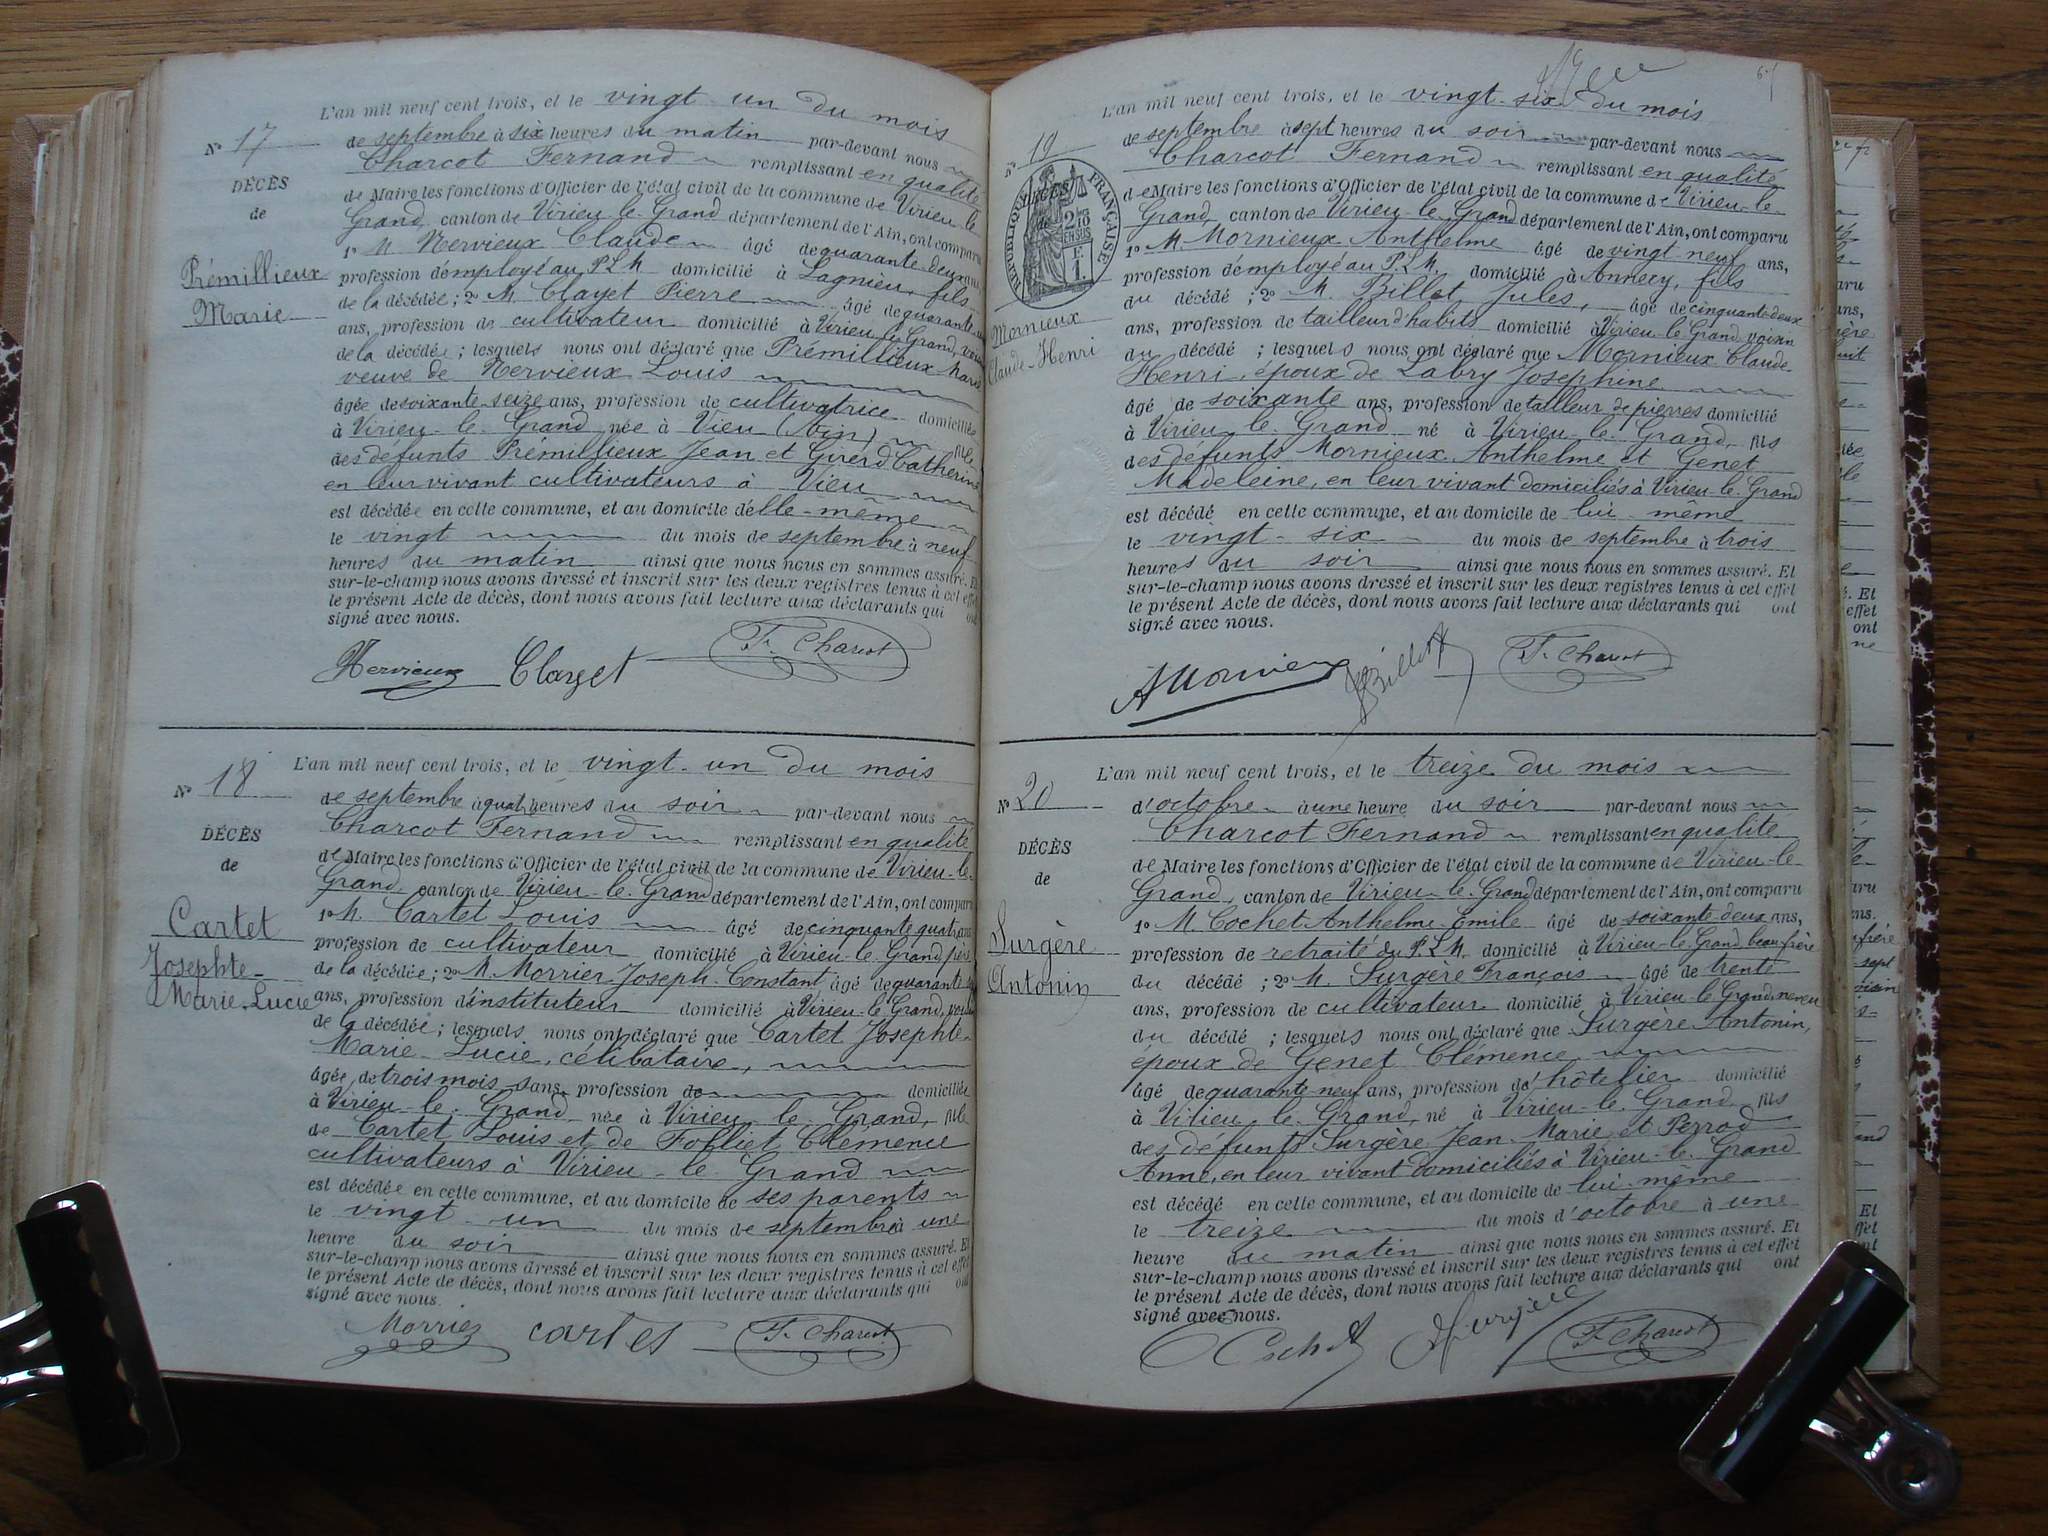 L'an mil neuf cent trois, et le vingt un du mois
Nº 17
de septembre à six heures du matin par-devant nous
Charcot Fernand remplissant en qualité
DÉCÈS
de Maire les fonctions d'Officier de l'état civil de la commune de Virieu-le-
de
Grand, canton de Virieu-le-Grand département de l'Ain, ont comparu
1º M. Nervieux Claude âgé de quarante-deux ans,
Prémillieux
profession d'employé au P.L.M. domicilié à Lagnieu, fils
Marie
de la décédée ; 2º M. Clayet Pierre âgé de quarante
ans, profession de cultivateur domicilié à Virieu-le-Grand, voisin
de la décédée ; lesquels nous ont déclaré que Prémillieux Marie
veuve de Nervieux Louis
âgée de soixante-seize ans, profession de cultivatrice domiciliée
à Virieu-le-Grand née à Vieu (Ain) fille
des défunts Prémillieux Jean et Guerd Catherine
en leur vivant cultivateurs à Vieu
est décédée en cette commune, et au domicile d'elle-même
le vingt du mois de septembre à neuf
heures du matin ainsi que nous nous en sommes assuré. Et
sur-le-champ nous avons dressé et inscrit sur les deux registres tenus à cet effet
le présent Acte de décès, dont nous avons fait lecture aux déclarants qui ont
signé avec nous.
Nervieux Clayet F. Charcot
L'an mil neuf cent trois, et le vingt-un du mois
Nº 18
de septembre à quatre heures du soir par-devant nous
Charcot Fernand remplissant en qualité
DÉCÈS
de Maire les fonctions d'Officier de l'état civil de la commune de Virieu-le-
de
Grand, canton de Virieu-le-Grand département de l'Ain, ont comparu
1º M. Cartet Louis âgé de cinquante quatre ans
Cartet
profession de cultivateur domicilié à Virieu-le-Grand père
Josephte-
de la décédée ; 2º M. Morrier Joseph-Constant âgé de quarante
Marie-Lucie
ans, profession d'instituteur domicilié à Virieu-le-Grand, voisin
de la décédée ; lesquels nous ont déclaré que Cartet Josephte-
Marie-Lucie, célibataire,
âgée de trois mois sans profession de domiciliée
à Virieu-le-Grand née à Virieu-le-Grand, fille
de Cartet Louis et de Folliet Clémence
cultivateurs à Virieu-le-Grand
est décédée en cette commune, et au domicile de ses parents
le vingt-un du mois de septembre à une
heure du soir ainsi que nous nous en sommes assuré. Et
sur-le-champ nous avons dressé et inscrit sur les deux registres tenus à cet effet
le présent Acte de décès, dont nous avons fait lecture aux déclarants qui ont
signé avec nous.
Morrier cartet F. Charcot
L'an mil neuf cent trois, et le vingt-six du mois
Nº 19
de septembre à sept heures du soir par-devant nous
Charcot Fernand remplissant en qualité
RÉPUBLIQUE FRANÇAISE
DÉCÈS
2/10 EN SUS
F. 1.
de Maire les fonctions d'Officier de l'état civil de la commune de Virieu-le-
Grand, canton de Virieu-le-Grand département de l'Ain, ont comparu
1º M. Mornieux Anthelme âgé de vingt-neuf ans,
profession d'employé au P.L.M. domicilié à Annecy, fils
du décédé ; 2º M. Billot Jules, âgé de cinquante-deux
Mornieux
ans, profession de tailleur d'habits domicilié à Virieu-le-Grand voisin
Claude-Henri
du décédé ; lesquels nous ont déclaré que Mornieux Claude-
Henri, époux de Labry Josephine
âgé de soixante ans, profession de tailleur de pierres domicilié
à Virieu-le-Grand né à Virieu-le-Grand, fils
des défunts Mornieux Anthelme et Genet
Madeleine, en leur vivant domiciliés à Virieu-le-Grand
est décédé en cette commune, et au domicile de lui-même
le vingt-six du mois de septembre à trois
heures du soir ainsi que nous nous en sommes assuré. Et
sur-le-champ nous avons dressé et inscrit sur les deux registres tenus à cet effet
le présent Acte de décès, dont nous avons fait lecture aux déclarants qui ont
signé avec nous.
A Mornieux Billot F. Charcot
L'an mil neuf cent trois, et le treize du mois
Nº 20
d'octobre à une heure du soir par-devant nous
Charcot Fernand remplissant en qualité
DÉCÈS
de Maire les fonctions d'Officier de l'état civil de la commune de Virieu-le-
de
Grand, canton de Virieu-le-Grand département de l'Ain, ont comparu
1º M. Cochet Anthelme Emile âgé de soixante-deux ans,
Surgère
profession de retraité du P.L.M. domicilié à Virieu-le-Grand beau frère
Antonin
du décédé ; 2º M. Surgère François âgé de trente
ans, profession de cultivateur domicilié à Virieu-le-Grand, neveu
du décédé ; lesquels nous ont déclaré que Surgère Antonin,
époux de Genet Clémence
âgé de quarante-neuf ans, profession d'hôtelier domicilié
à Vilieu-le-Grand, né à Virieu-le-Grand fils
des défunts Surgère Jean-Marie et Perrod
Anne, en leur vivant domiciliés à Virieu-le-Grand
est décédé en cette commune, et au domicile de lui-même
le treize du mois d'octobre à une
heure du matin ainsi que nous nous en sommes assuré. Et
sur-le-champ nous avons dressé et inscrit sur les deux registres tenus à cet effet
le présent Acte de décès, dont nous avons fait lecture aux déclarants qui ont
signé avec nous.
Cochet Surgère F. Charcot